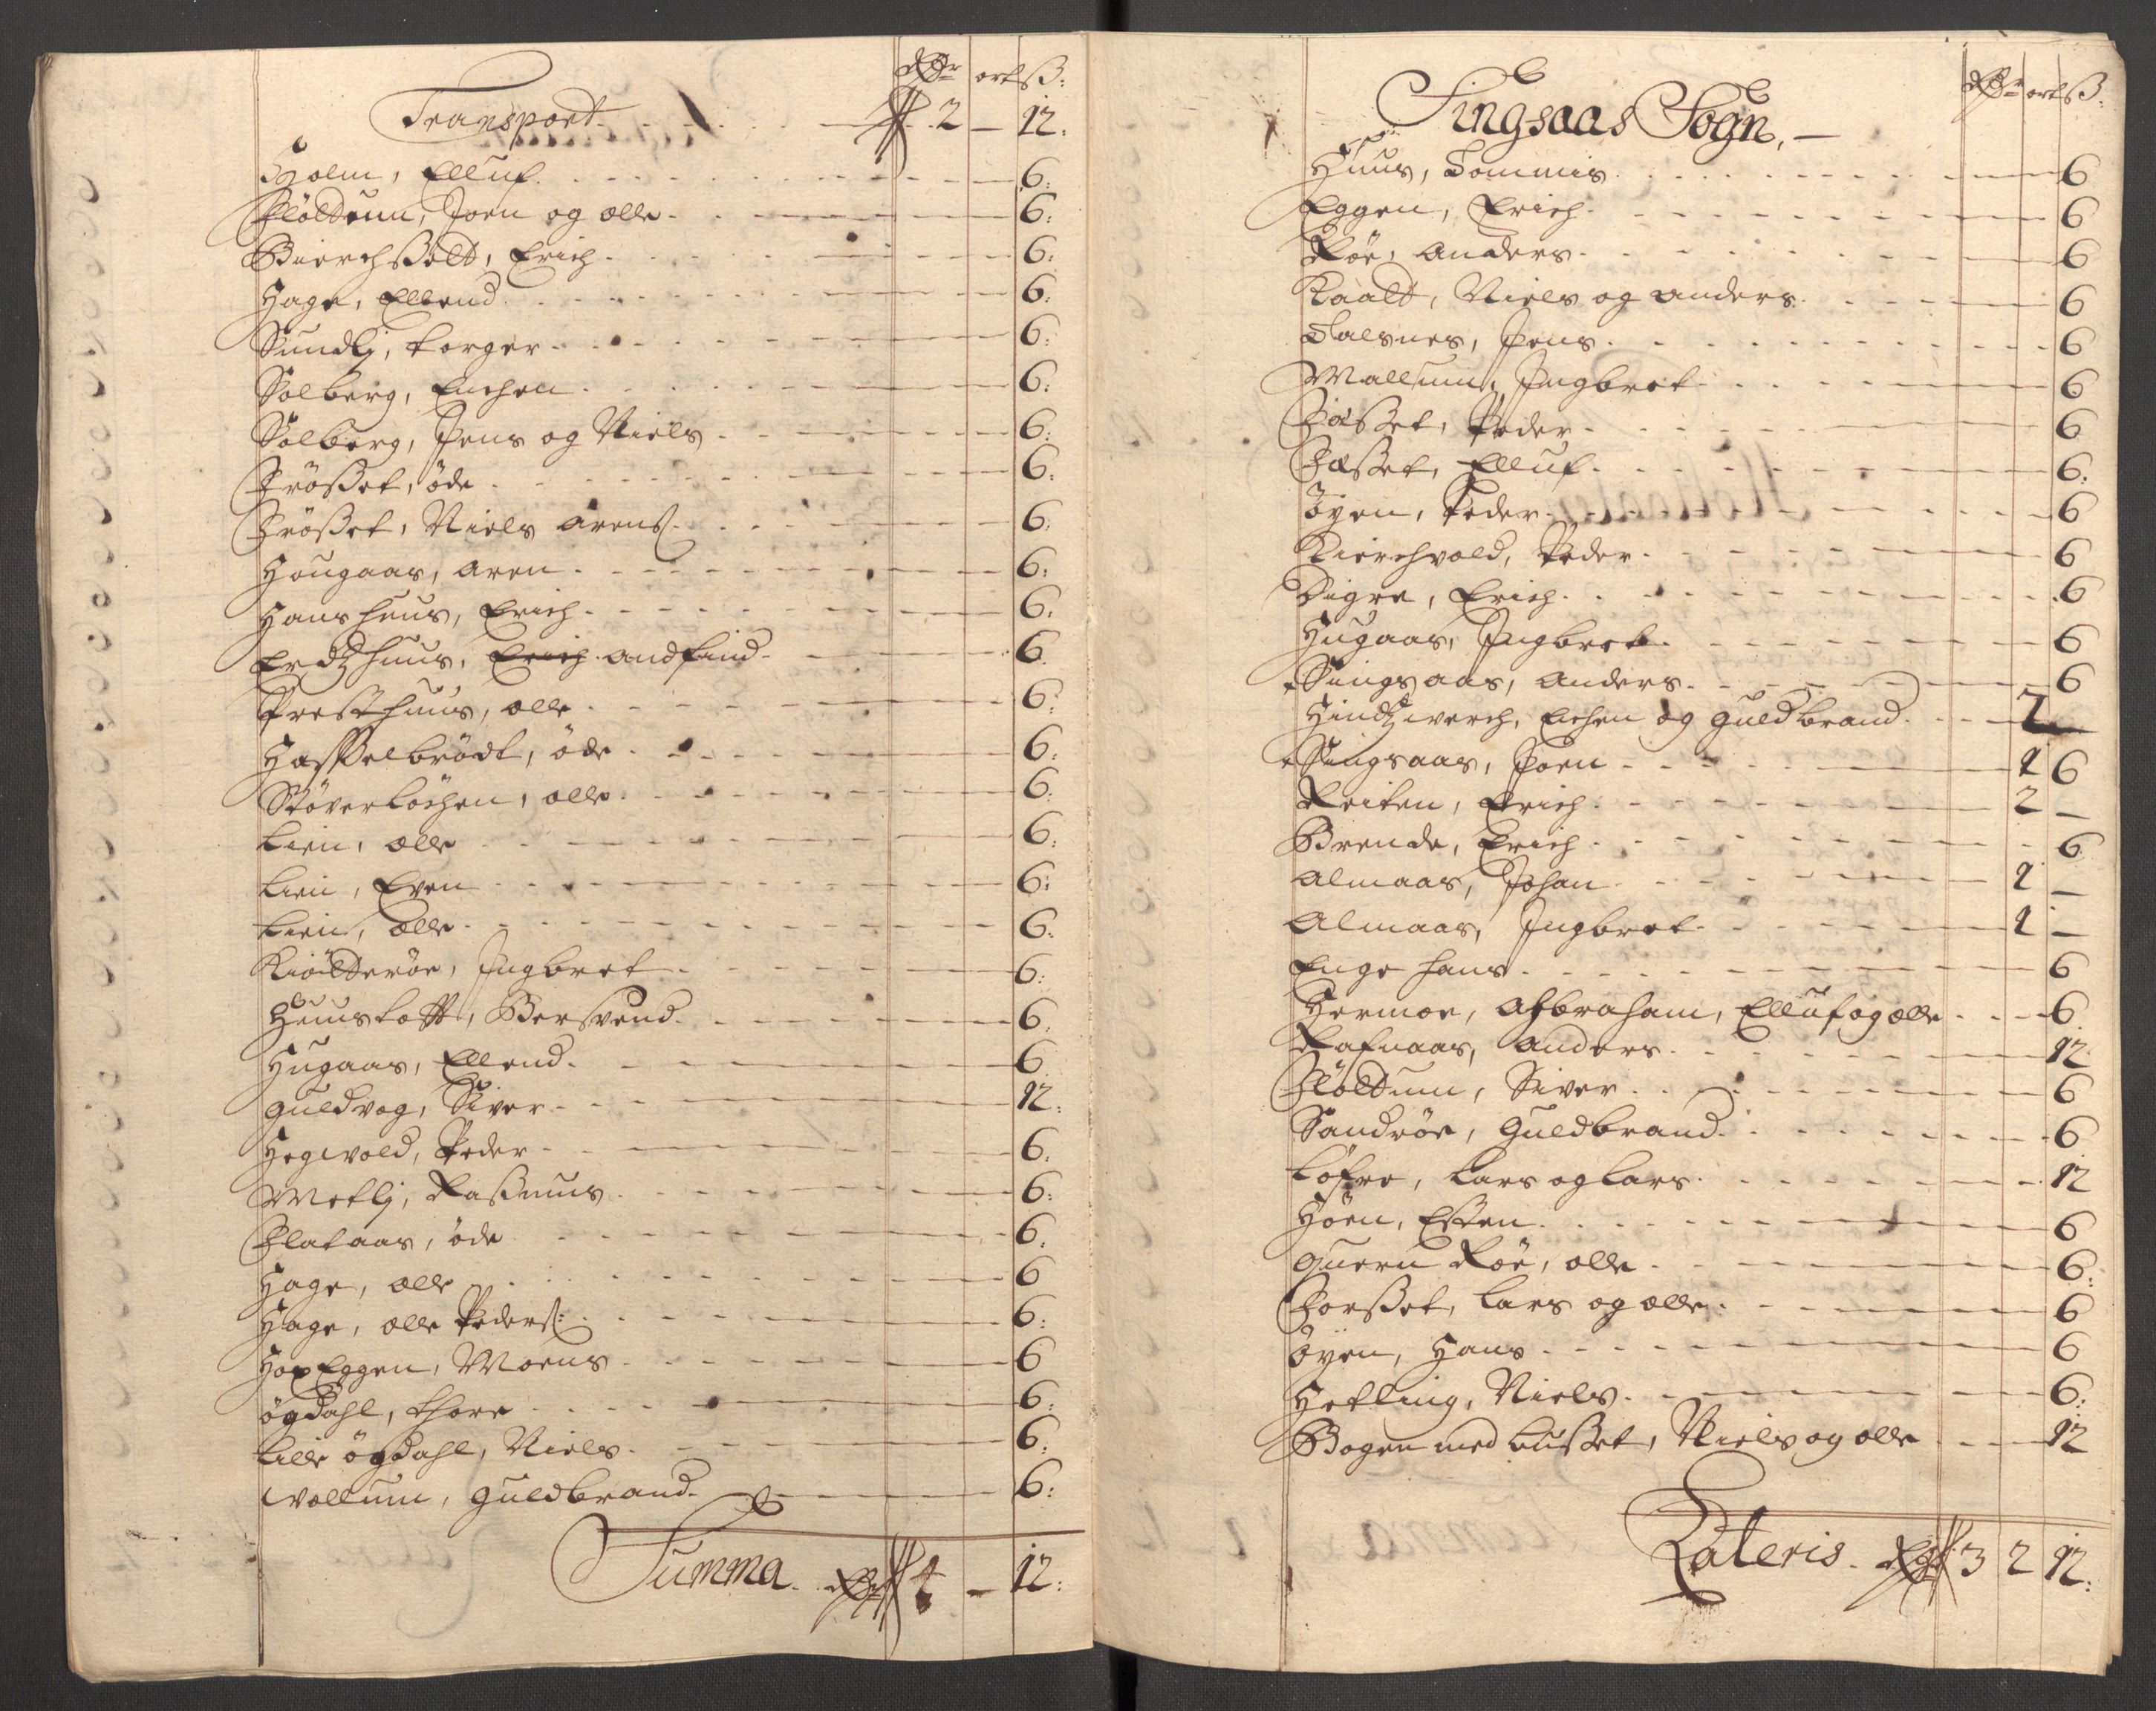 Rdr ort ß:
Transport 2 – 12:
Holm, Elluf 6:
Flöttum, Joen og olle 6:
Bierchßett, Erich 6:
Hage, Ellend 6:
Sundlj, torger 6:
Solberg, Enchen 6:
Solberg, Jens og Niels 6:
Frößet, öde 6:
Frößet, Niels arens 6:
Hougaas, aren 6:
Hanshuus, Erich 6:
Endtzhuus, Erich andfind 6
Presthuus, olle 6:
Hasselbrödt, öde 6:
Stöverløchen, olle 6:
Lien, olle 6:
Lien, Even 6:
Lien, olle 6:
Kiölderöe, Ingbret 6:
Huuskaas, Bersvend 6:
Hugaas, Ellend 6
Guldvog, Siver 12:
Hegwold, Peder 6:
Metlj, Raßmus 6:
Flataas, öde 6:
Hage, olle 6
Hage, olle Peders: 6:
HoxEggen, Moens 6
ögdahl, thore 6:
Lille ögdahl, Niels 6:
wollum, guldbrand 6:
Summa Rdr 4 – 12:
Rdr ort ß:
Singsaas Sogn.
Huus, Tommis 6
Eggen, Erich 6
Röe, anders 6
Kaalt, Niels og anders 6
Talsnes, Jens 6
Wallum, Ingbret 6
Faßet, Peder 6
Faßet, Elluf 6:
öyen, Peder 6
Kierchvold, Peder 6
Digre, Erich 6
Hugaas, Ingbret 6
Singsaas, anders 6
Hindtzwerch, Enchen og guldbrand 2 –
Singsaas, Joen 1 6
Reiten, Erich 2 –
Brende, Erich 6
almaas, Johan 1 –
Almaas, Ingbret 1 –
Enge hans 6
Hermoe, Abraham, Elluf og olle 6
Rafnaas, anders 12
Flöttum, Siver 6
Sandröe, Guldbrand 6
Löfre, Lars og Lars 12
Höen, Esten 6
quern Röe, olle 6:
Forßet, Lars og olle 6
öyen, Hans 6
Hetling, Niels 6:
Bogen med bußet, Niels og olle 12
Lateris Rdr 3 2 12: